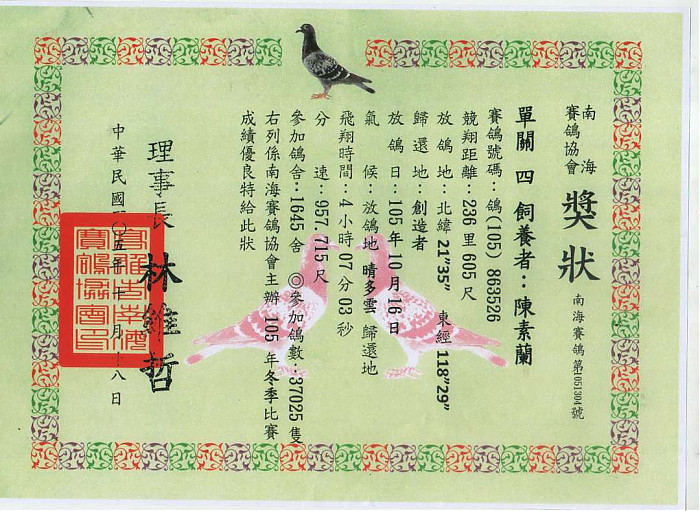 南海
賽鴿協會
獎狀
南海賽鴿第1051304號
單關 四 飼養者：陳素蘭
賽鴿號碼：鴿(105) 863526
競翔距離：236 里 605 尺
放鴿地：北緯 21"35" 東經 118"29"
歸還地：創造者
放鴿日：105 年 10 月 16 日
氣候：放鴿地 晴多雲 歸還地
飛翔時間：4 小時 07 分 03 秒
分速：957.715 尺
參加鴿舍：1645 舍 ◎參加鴿數：37025 隻
右列係南海賽鴿協會主辦 105 年冬季比賽
成績優良特給此狀
理事長 林維哲
中華民國一〇五年十二月十八日